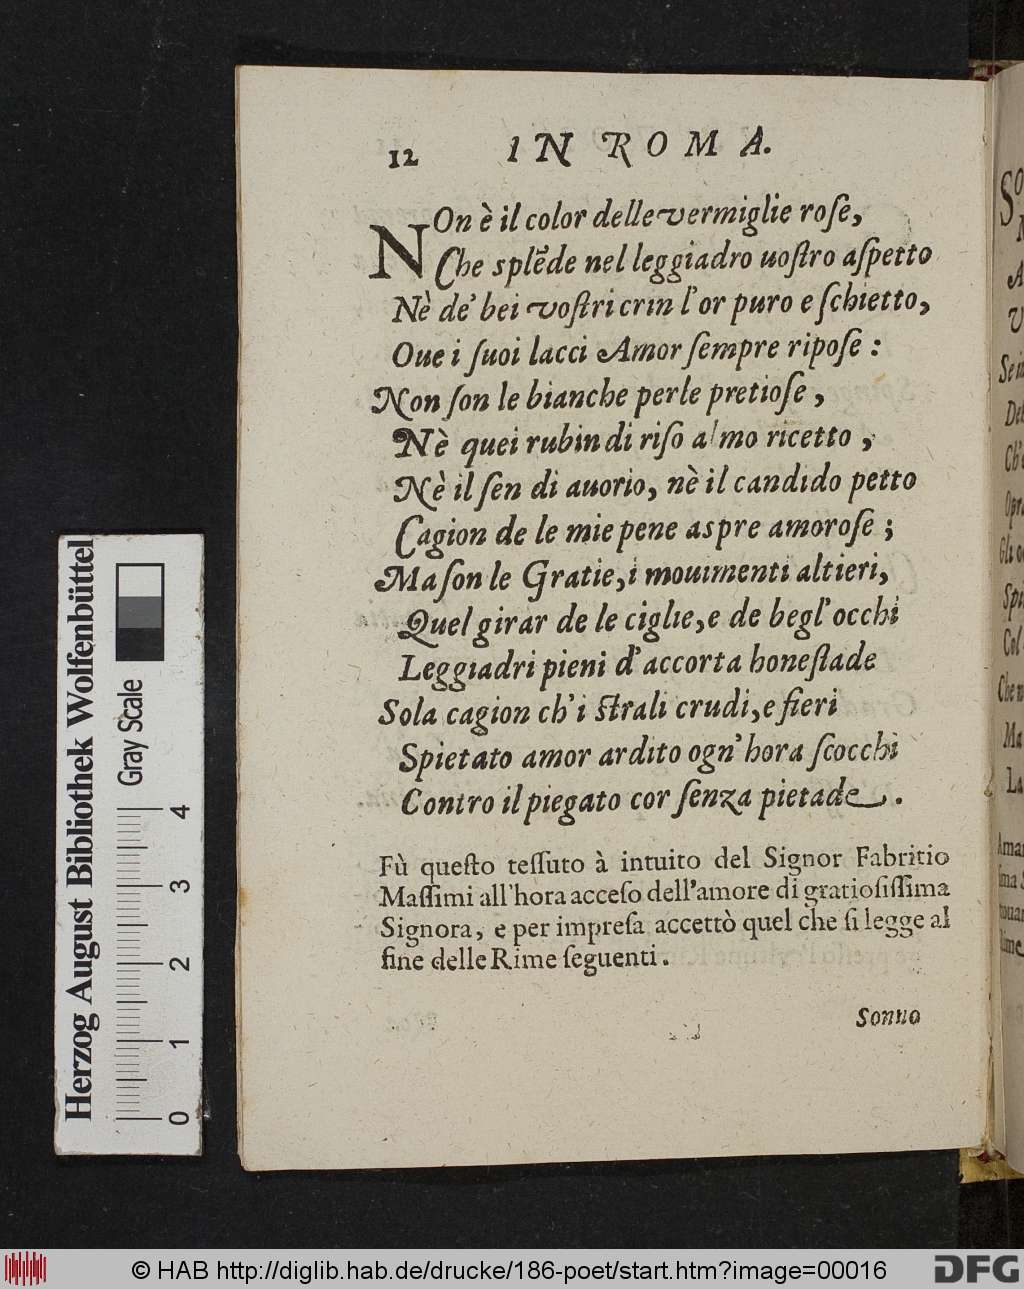 12 IN ROMA.
NOn è il color delle vermiglie rose,
Che splēde nel leggiadro uostro aspetto
Nè de' bei vostri crin l'or puro e schietto,
Oue i suoi lacci Amor sempre ripose :
Non son le bianche perle pretiose ,
Nè quei rubin di riso almo ricetto ,
Nè il sen di auorio, nè il candido petto
Cagion de le mie pene aspre amorose ;
Ma son le Gratie, i mouimenti altieri,
Quel girar de le ciglie, e de begl' occhi
Leggiadri pieni d'accorta honestade
Sola cagion ch'i strali crudi, e fieri
Spietato amor ardito ogn' hora scocchi
Contro il piegato cor senza pietade .
Fù questo tessuto à intuito del Signor Fabritio
Massimi all'hora acceso dell'amore di gratiosissima
Signora, e per impresa accettò quel che si legge al
fine delle Rime seguenti .
Sonno
Herzog August Bibliothek Wolfenbüttel
Gray Scale
0 1 2 3 4
© HAB http://diglib.hab.de/drucke/186-poet/start.htm?image=00016
DFG